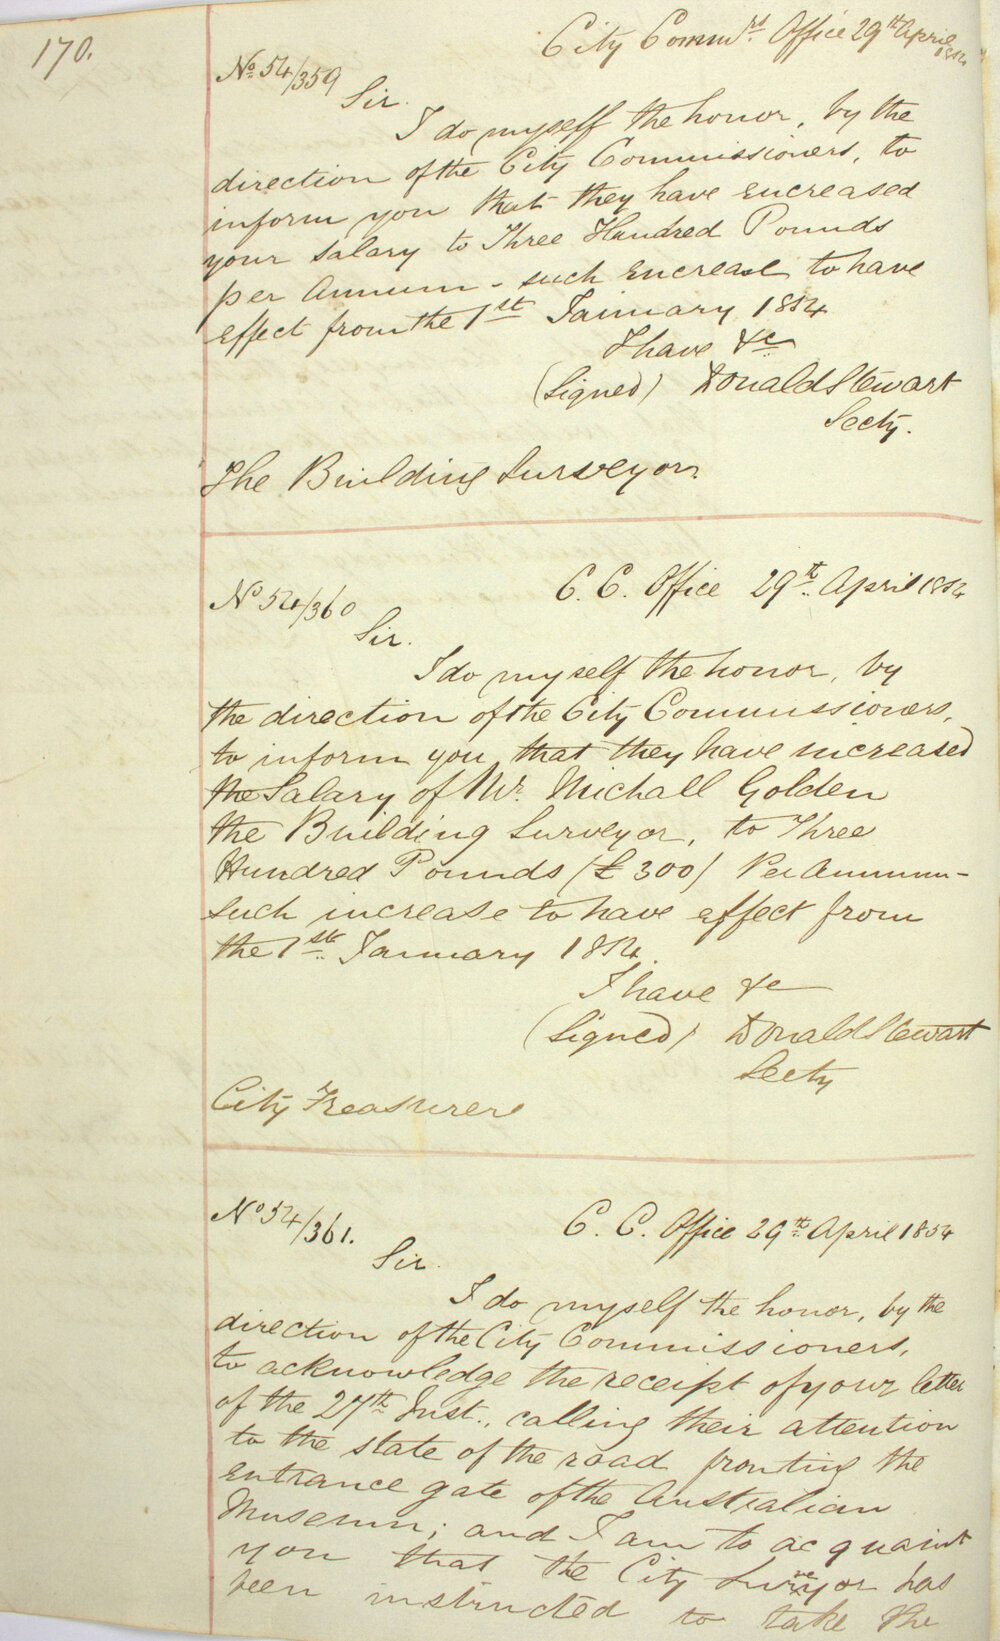 170.
City Commrs. Office 29th April
1854
No. 54/359
Sir.
I do myself the honor, by the
direction of the City Commissioners, to
inform you that they have encreased
your Salary to Three Hundred Pounds
per Annum - such encrease to have
effect from the 1st January 1854
I have &c
(Signed) Donald Stewart
Secty.
The Building Surveyor.
No 54/360
C. C. Office 29th. April 1854
Sir.
I do myself the honor, by
the direction of the City Commissioners,
to inform you that they have increased
the Salary of Mr. Michall Golden
the Building Surveyor, to Three
Hundred Pounds (£300) Per Annum -
such increase to have effect from
the 1st. January 1854.
I have &c
(Signed) Donald Stewart
Secty
City Treasurer
No 54/361.
C. C. Office 29th. April 1854
Sir.
I do myself the honor, by the
direction of the City Commissioners,
to acknowledge the receipt of your letter
of the 27th Inst., calling their attention
to the state of the road fronting the
entrance gate of the Australian
Museum; and I am to acquaint
you that the City Surveyor has
been instructed to take the